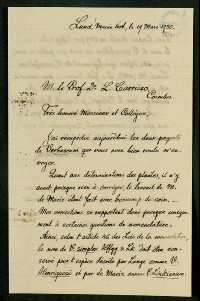 Lund, Musée bot., le 19 Mars 1900.
M. le Prof. Dr. L.
Très honoré Monsieur et Collègue,
J'ai réexpédié aujourd'hui les deux paquets
de Verbascum que vous avez bien voulu m'en-
voyer.
Quant aux déterminations des plantes, il n'y
avait presque rien à corriger, le travail de M.
de Mariz étant fait avec beaucoup de soin.
Mes corrections se rapportent donc presque unique-
ment à certaines questions de nomenclature.
Ainsi, selon l'article des Lois de la nomenclature,
le nom de V. simplex Hffgg & Lk doit être con-
servé pour l'espèce décrite par Lange comme V.
Henriquesii et par de Mariz comme V. Linkianum